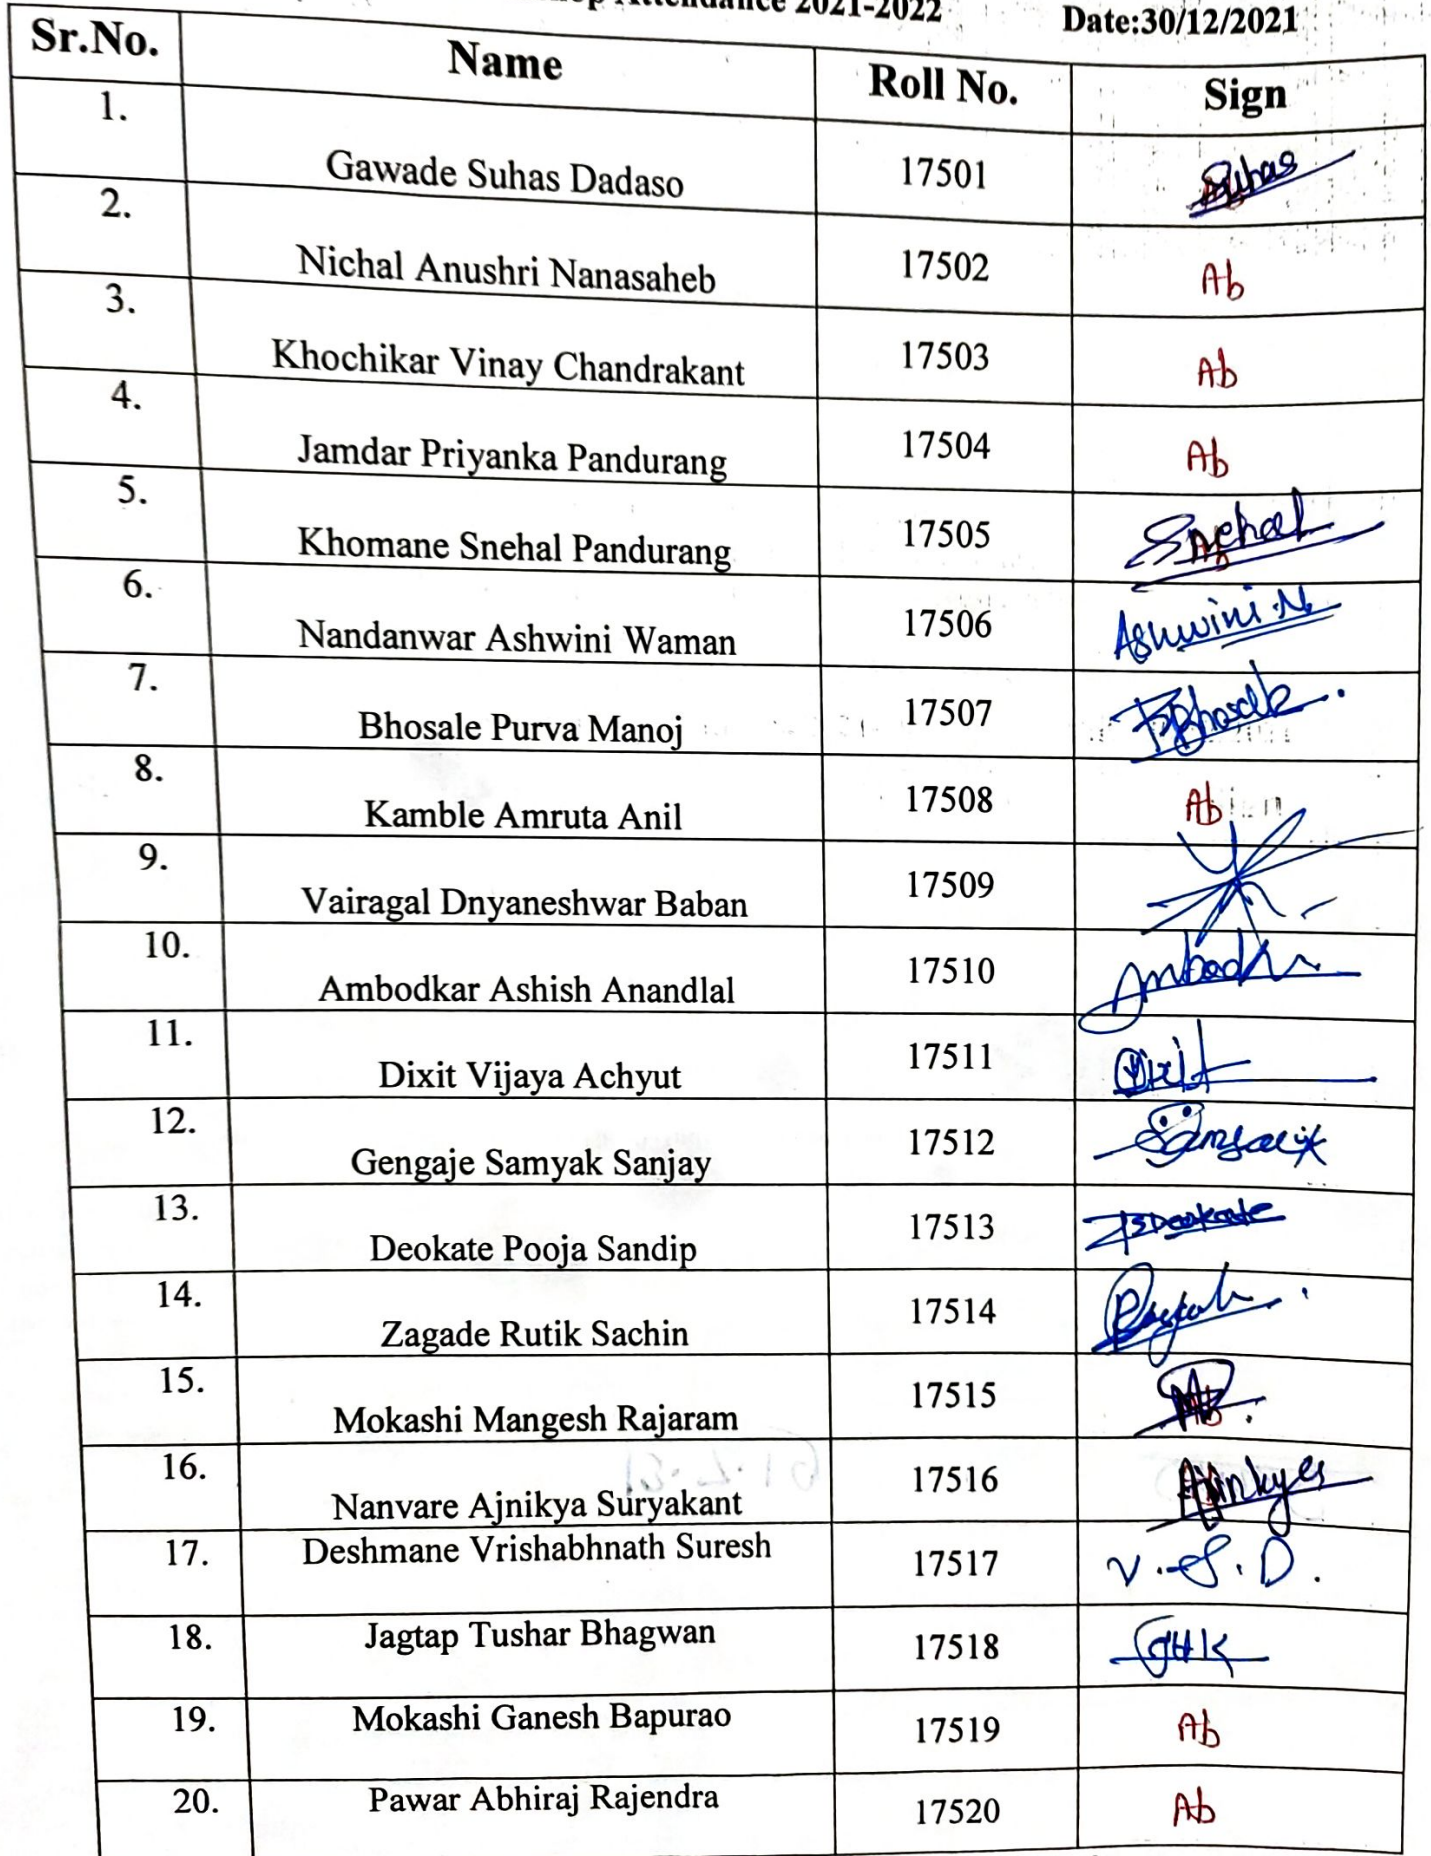 Attendance 2021-2022 Date:30/12/2021
Sr.No. Name Roll No. Sign
1. Gawade Suhas Dadaso 17501 Suhas
2. Nichal Anushri Nanasaheb 17502 Ab
3. Khochikar Vinay Chandrakant 17503 Ab
4. Jamdar Priyanka Pandurang 17504 Ab
5. Khomane Snehal Pandurang 17505 Snehal
6. Nandanwar Ashwini Waman 17506 Ashwini.N
7. Bhosale Purva Manoj 17507 Bhosale
8. Kamble Amruta Anil 17508 Ab
9. Vairagal Dnyaneshwar Baban 17509
10. Ambodkar Ashish Anandlal 17510
11. Dixit Vijaya Achyut 17511 Dixit
12. Gengaje Samyak Sanjay 17512
13. Deokate Pooja Sandip 17513 PSDeokate
14. Zagade Rutik Sachin 17514
15. Mokashi Mangesh Rajaram 17515
16. Nanvare Ajnikya Suryakant 17516
17. Deshmane Vrishabhnath Suresh 17517 V.S.D.
18. Jagtap Tushar Bhagwan 17518
19. Mokashi Ganesh Bapurao 17519 Ab
20. Pawar Abhiraj Rajendra 17520 Ab